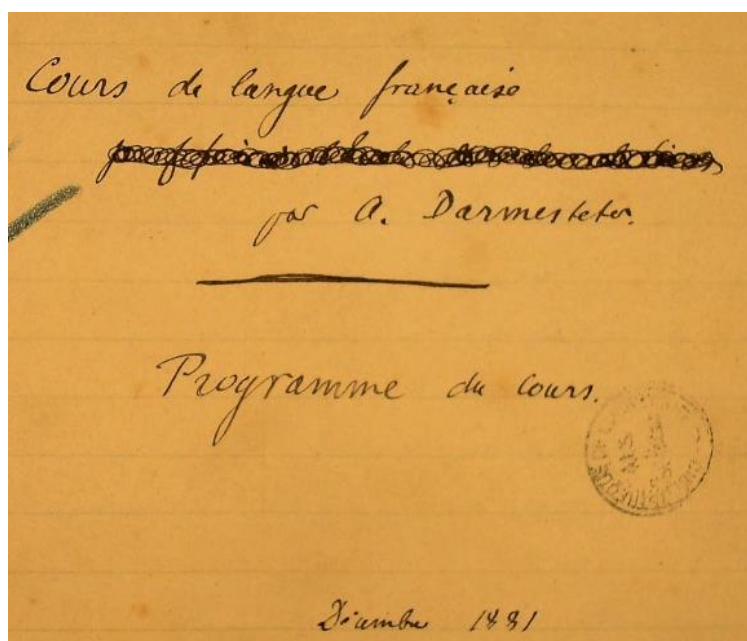 Cours de langue française
par A. Darmesteter.
Programme du Cours.
Décembre 1881